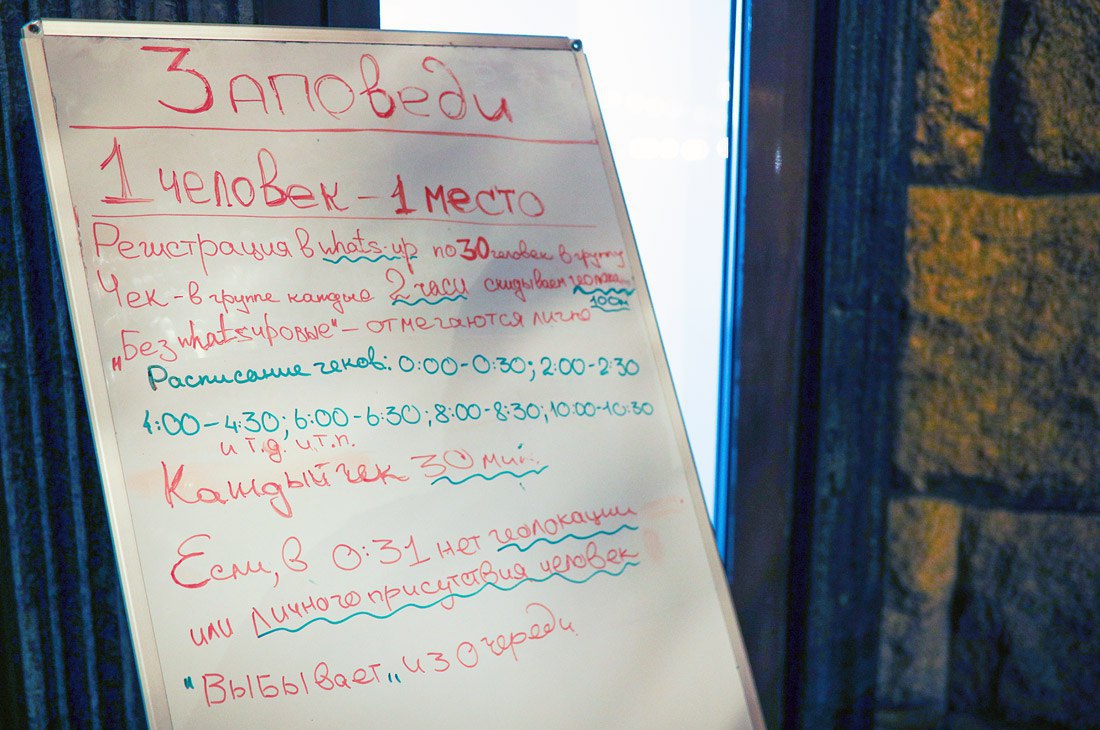 Заповеди
1 человек - 1 место
Регистрация в whats-up по 30 человек в группу
Чек - в группе каждые 2 часа скидываем геолока
100м
"Без whatsupовые" - отмечаются лично
Расписание чеков: 0:00-0:30; 2:00-2:30
4:00-4:30; 6:00-6:30; 8:00-8:30; 10:00-10:30
и т.д. и.т.п.
Каждый чек 30 мин.
Если, в 0:31 нет геолокации
или личного присутствия человек
"Выбывает" из очереди